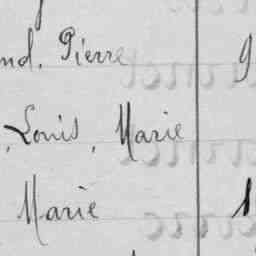 nd, Pierre
, Louis, Marie
Marie